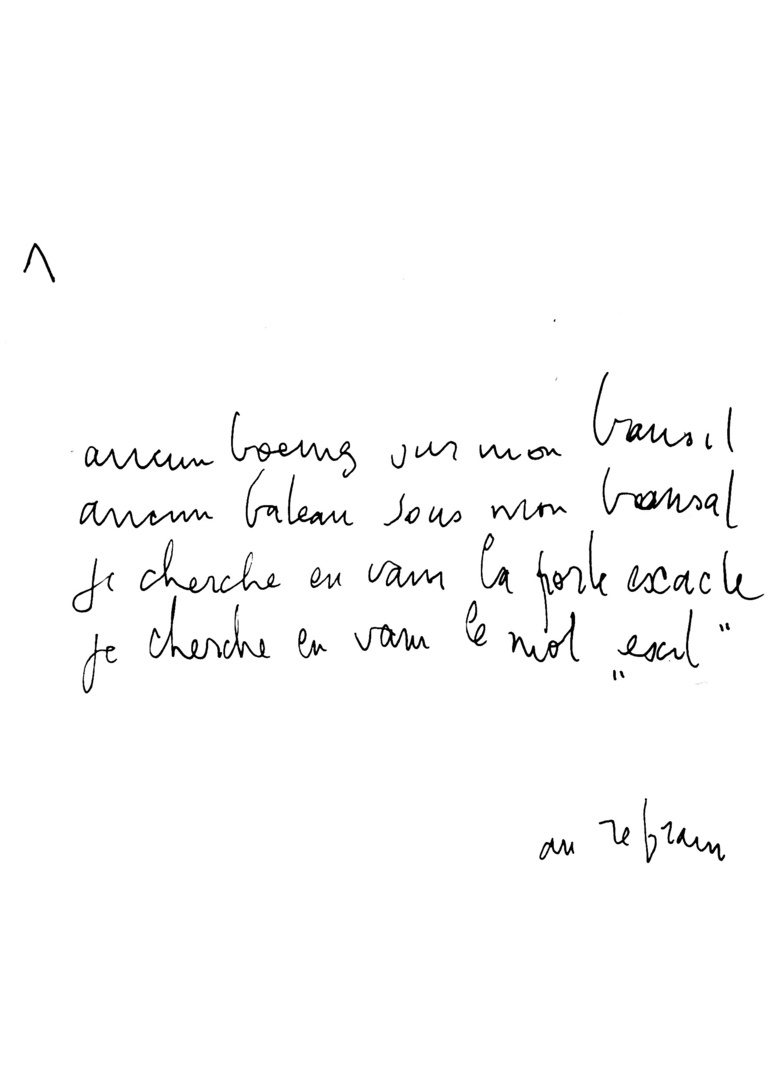 1
aucun boeing sur mon transit
aucun bateau sous mon transat
je cherche en vain la porte exacte
je cherche en vain le mot „exit"
au refrain